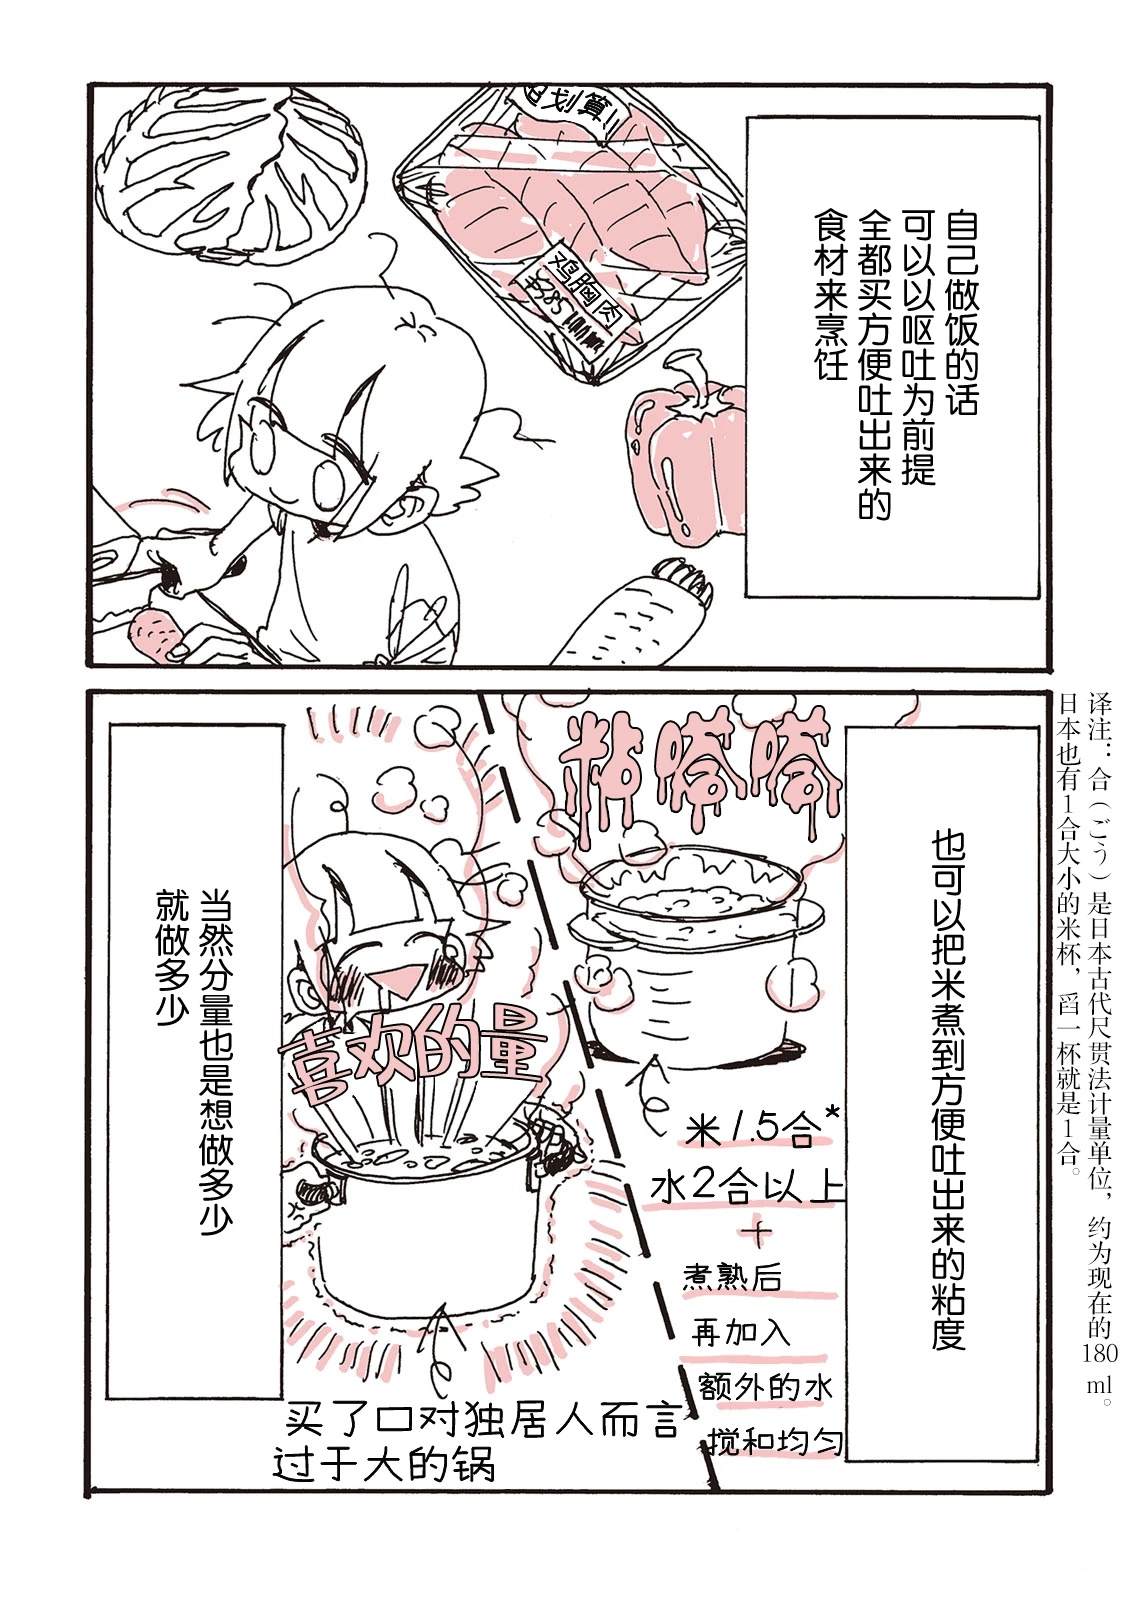 自己做饭的话
可以以呕吐为前提
全都买方便吐出来的
食材来烹饪
划算!!
鸡胸肉
¥385
也可以把米煮到方便吐出来的粘度
粘嗒嗒
米1.5合*
水2合以上
+
煮熟后
再加入
额外的水
搅和均匀
喜欢的量
买了口对独居人而言
过于大的锅
当然分量也是想做多少
就做多少
译注：合（ごう）是日本古代尺贯法计量单位，约为现在的180ml。
日本也有1合大小的米杯，舀一杯就是1合。